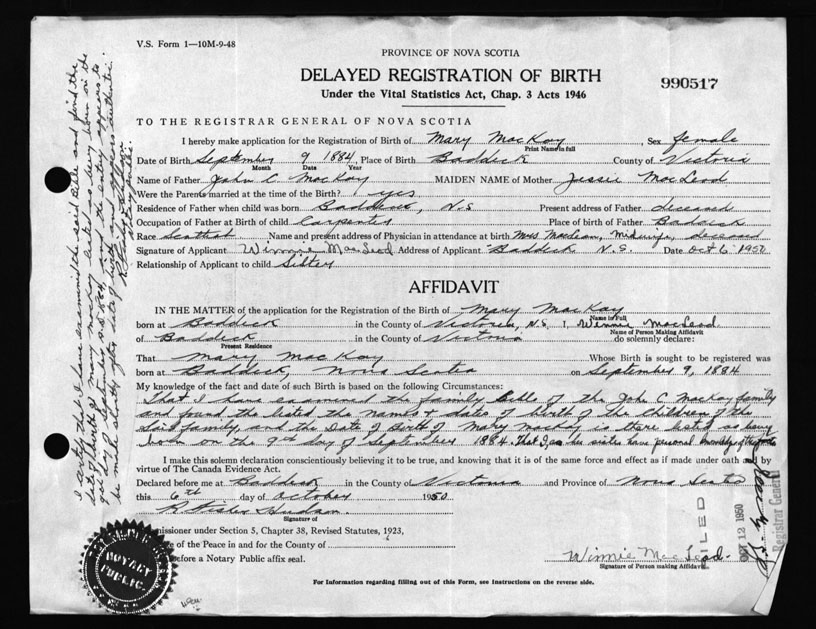 V.S. Form 1—10M-9-48
PROVINCE OF NOVA SCOTIA
DELAYED REGISTRATION OF BIRTH
990517
Under the Vital Statistics Act, Chap. 3 Acts 1946
TO THE REGISTRAR GENERAL OF NOVA SCOTIA
I hereby make application for the Registration of Birth of Mary MacKay, Sex female
Print Name in full
Date of Birth September 9 1884, Place of Birth Baddeck County of Victoria
Month Date Year
Name of Father John C MacKay MAIDEN NAME of Mother Jessie MacLeod
Were the Parents married at the time of the Birth? yes
Residence of Father when child was born Baddeck, N.S Present address of Father deceased
Occupation of Father at Birth of child Carpenter Place of birth of Father Baddeck
Race Scottish Name and present address of Physician in attendance at birth Mrs Maclean, Midwife, deceased
Signature of Applicant Winnie MacLeod Address of Applicant Baddeck N.S. Date Oct 6 1950
Relationship of Applicant to child Sister
AFFIDAVIT
IN THE MATTER of the application for the Registration of the Birth of Mary MacKay
Name in Full
born at Baddeck in the County of Victoria, N.S. I, Winnie MacLeod
Name of Person Making Affidavit
of Baddeck in the County of Victoria do solemnly declare:
Present Residence
That Mary MacKay Whose Birth is sought to be registered was
born at Baddeck, Nova Scotia on September 9, 1884
My knowledge of the fact and date of such Birth is based on the following Circumstances:
That I have examined the family Bible of the John C MacKay family
and found the listed the names + dates of birth of the children of the
said family, and the Date of Birth of Mary MacKay is there listed as being
born on the 9th day of September 1884. That I as her sister have personal knowledge of the
I make this solemn declaration conscientiously believing it to be true, and knowing that it is of the same force and effect as if made under oath and by
virtue of The Canada Evidence Act.
Declared before me at Baddeck in the County of Victoria and Province of Nova Scotia
this 6th day of October 1950
Hudson
Signature of
missioner under Section 5, Chapter 38, Revised Statutes, 1923,
e of the Peace in and for the County of
before a Notary Public affix seal.
Winnie MacLeod.
Signature of Person making Affidavit
For Information regarding filling out of this Form, see Instructions on the reverse side.
I certify that I have examined the said Bible and find the
date of birth of Mary MacKay listed as being born on the
9th day of September A.D. 1884, and the entry appears to
be made shortly after date of birth and appears authentic.
NOTARY
PUBLIC
FILED
OCT 12 1950
Registrar General